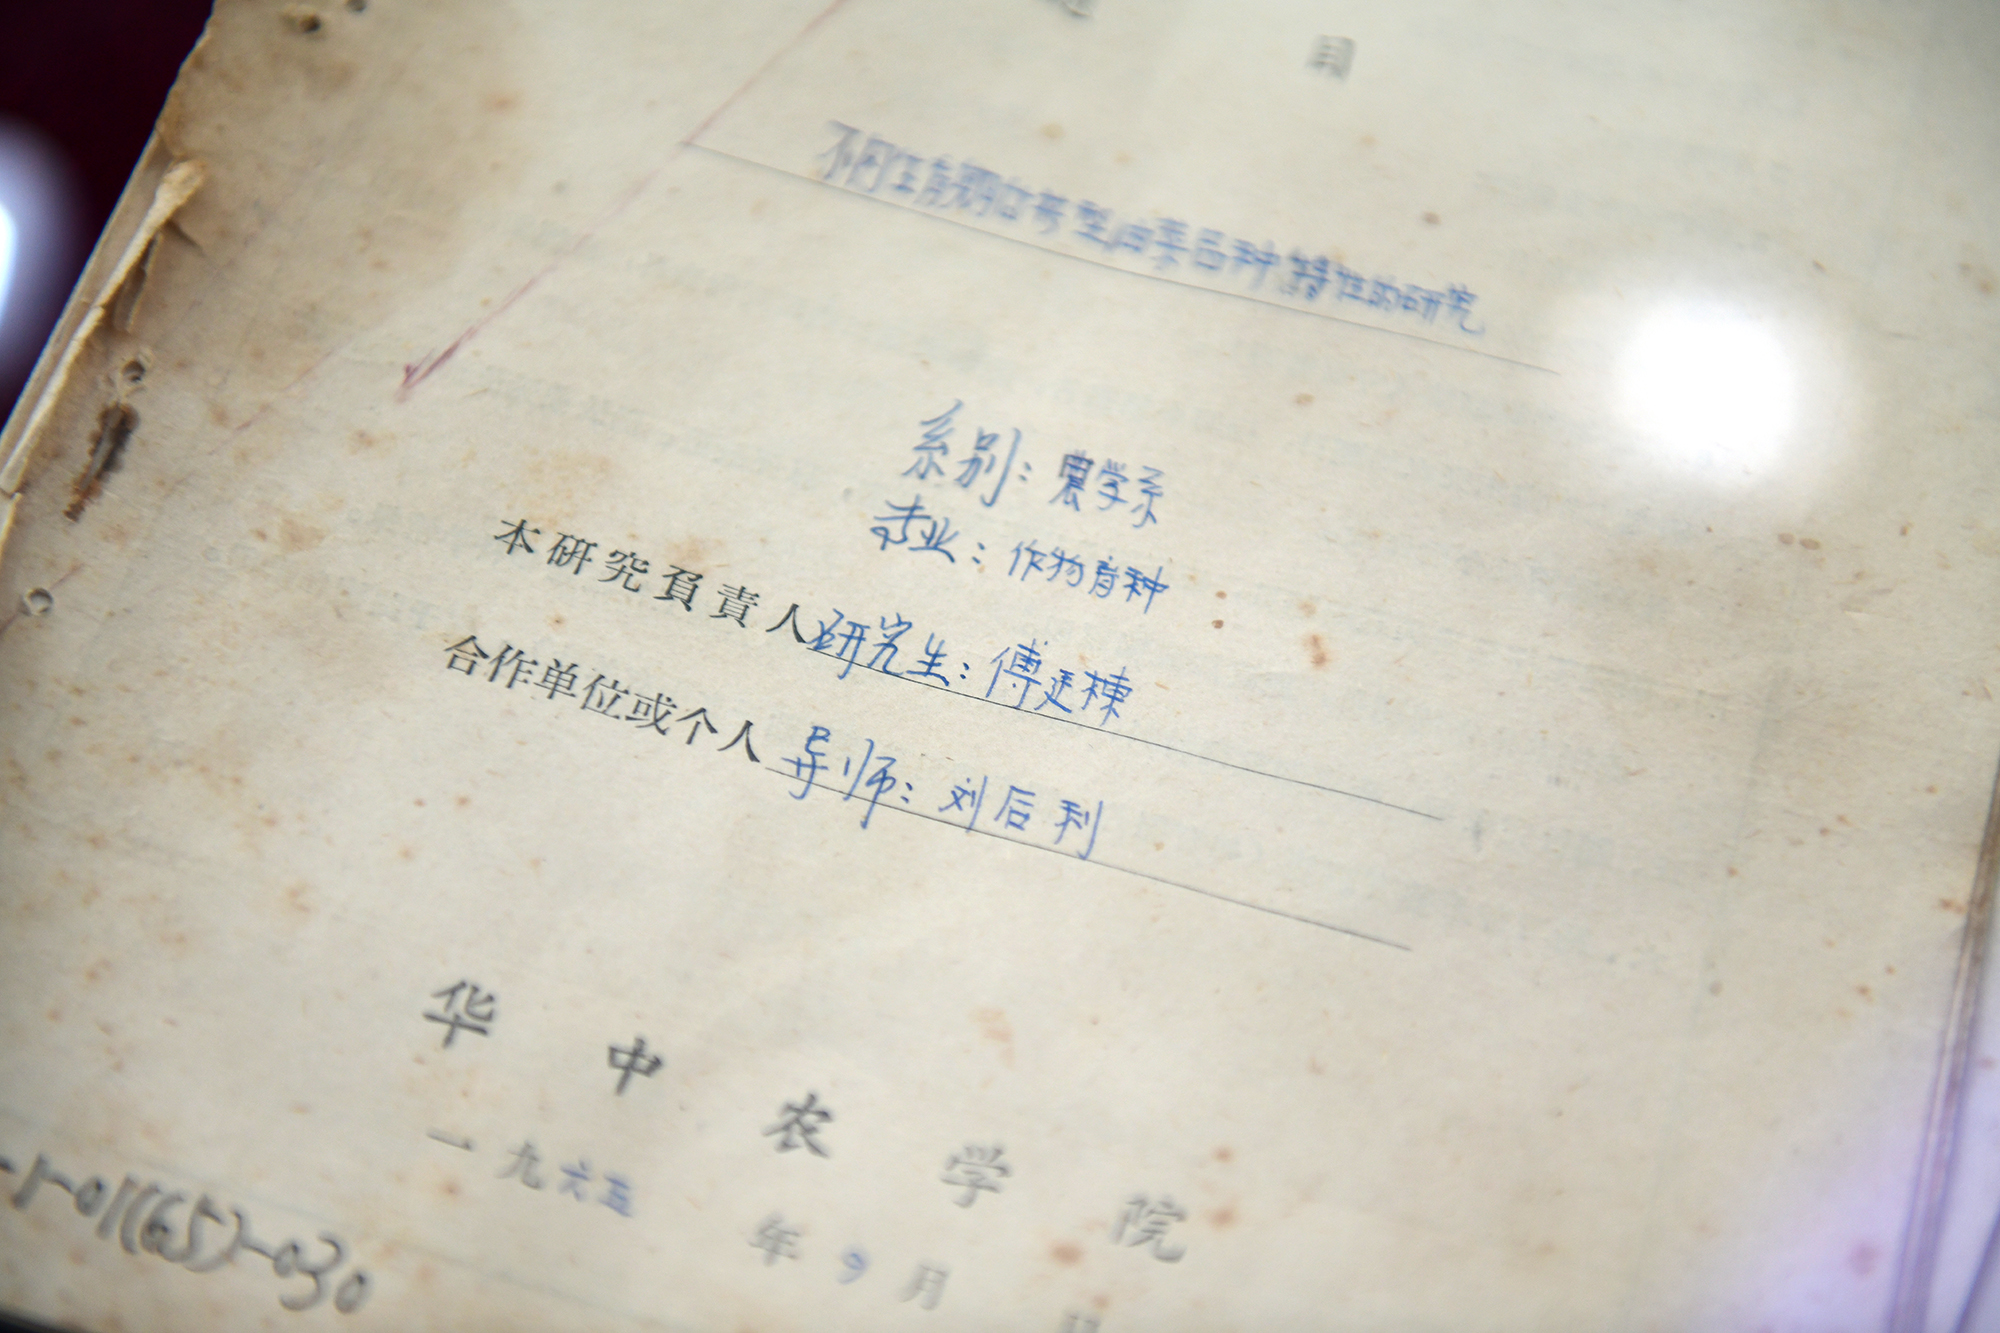 目
不同生育期甘蓝型油菜品种特性的研究
系别：農学系
专业：作物育种
本研究負責人研究生：傅廷棟
合作单位或个人 导师：刘后利
华中农学院
一九六五年9月 日
-1-01(65)-030